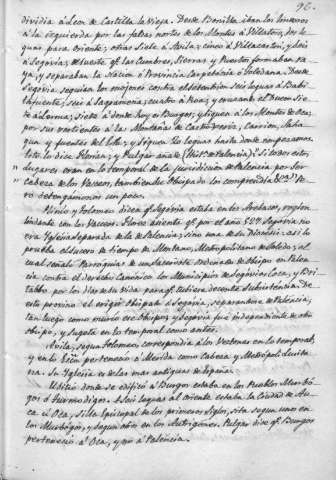 96.
dividia á Leon de Castilla la Vieja. Desde Bonilla iban los linderos
á la izquierda por las faldas nortes de los Montes á Villatoro, dos le-
guas para oriente; otras siete á Avila; cinco á Villacastin; y seis
á Segovia; de suerte q.e las cumbres, Sierras y Puertos formaban ra-
ya, y separaban la Nacion ó Provincia Carpetania ó Toledana. Desde
Segovia seguian los mojones contra el Setentrion seis leguas á
seis á Sagramena; cuatro á Roa; y cruzando el Duero siete
á Lerma; siete á donde hoy es Burgos; y leguas á los Montes de Oca;
por sus vertientes á las Montañas de Castroverde, Carrion, Saha-
gun y puentes del Esla; y siguen leguas hasta donde empezamos.
todo lo dice Florian; y Pulgar añade (Hist.a de Palencia) Si todos estos
lugares eran en lo temporal de la jurisdicion de Palencia por ser
cabeza de los Vaceos, tambien su Obispado los comprendia &c.a
detengamonos un poco.
Plinio y Tolomeo dicen q.e Segovia estaba entre Arebacos, region
lindante con los Vaceos. Florez asiente q.e por el año 527 Segovia no era
Yglesia separada de la de Palencia; sino una de su Diocesis. así lo
prueba el suceso de tiempo de Montano, Metropolitano de Toledo, el
cual señaló Parroquias de
á un Obispo en Palen-
cia contra el derecho Canónico los Municipios de Segovia, Coca, y Bri-
tablo por los dias de su vida para q.e tubiere decente Subsistencia. De
esto provino el origen Obispado á Segovia, separandose de Palencia,
tan luego como murió ese Obispo; y Segovia fue independiente de otro
Obispo, y sugeta en lo temporal como antes.
Avila, segun Tolomeo correspondia á los Vectones en lo temporal,
y en lo Ecco pertenecia á Merida como Cabeza y Metropoli Lusita-
na. Su Yglesia es de las mas antiguas de España.
El sitio donde se edificó á Burgos estaba en los Pueblos Murbo-
gos ó turmodigos. A seis leguas al oriente estaba la Ciudad de Au-
ca ú Oca, Silla Episcopal de los primeros Siglos, sita segun unos en
los Murbogos, y segun otros en los Autrigones. Pulgar dice q.e Burgos
perteneció á Oca, y no á Palencia.